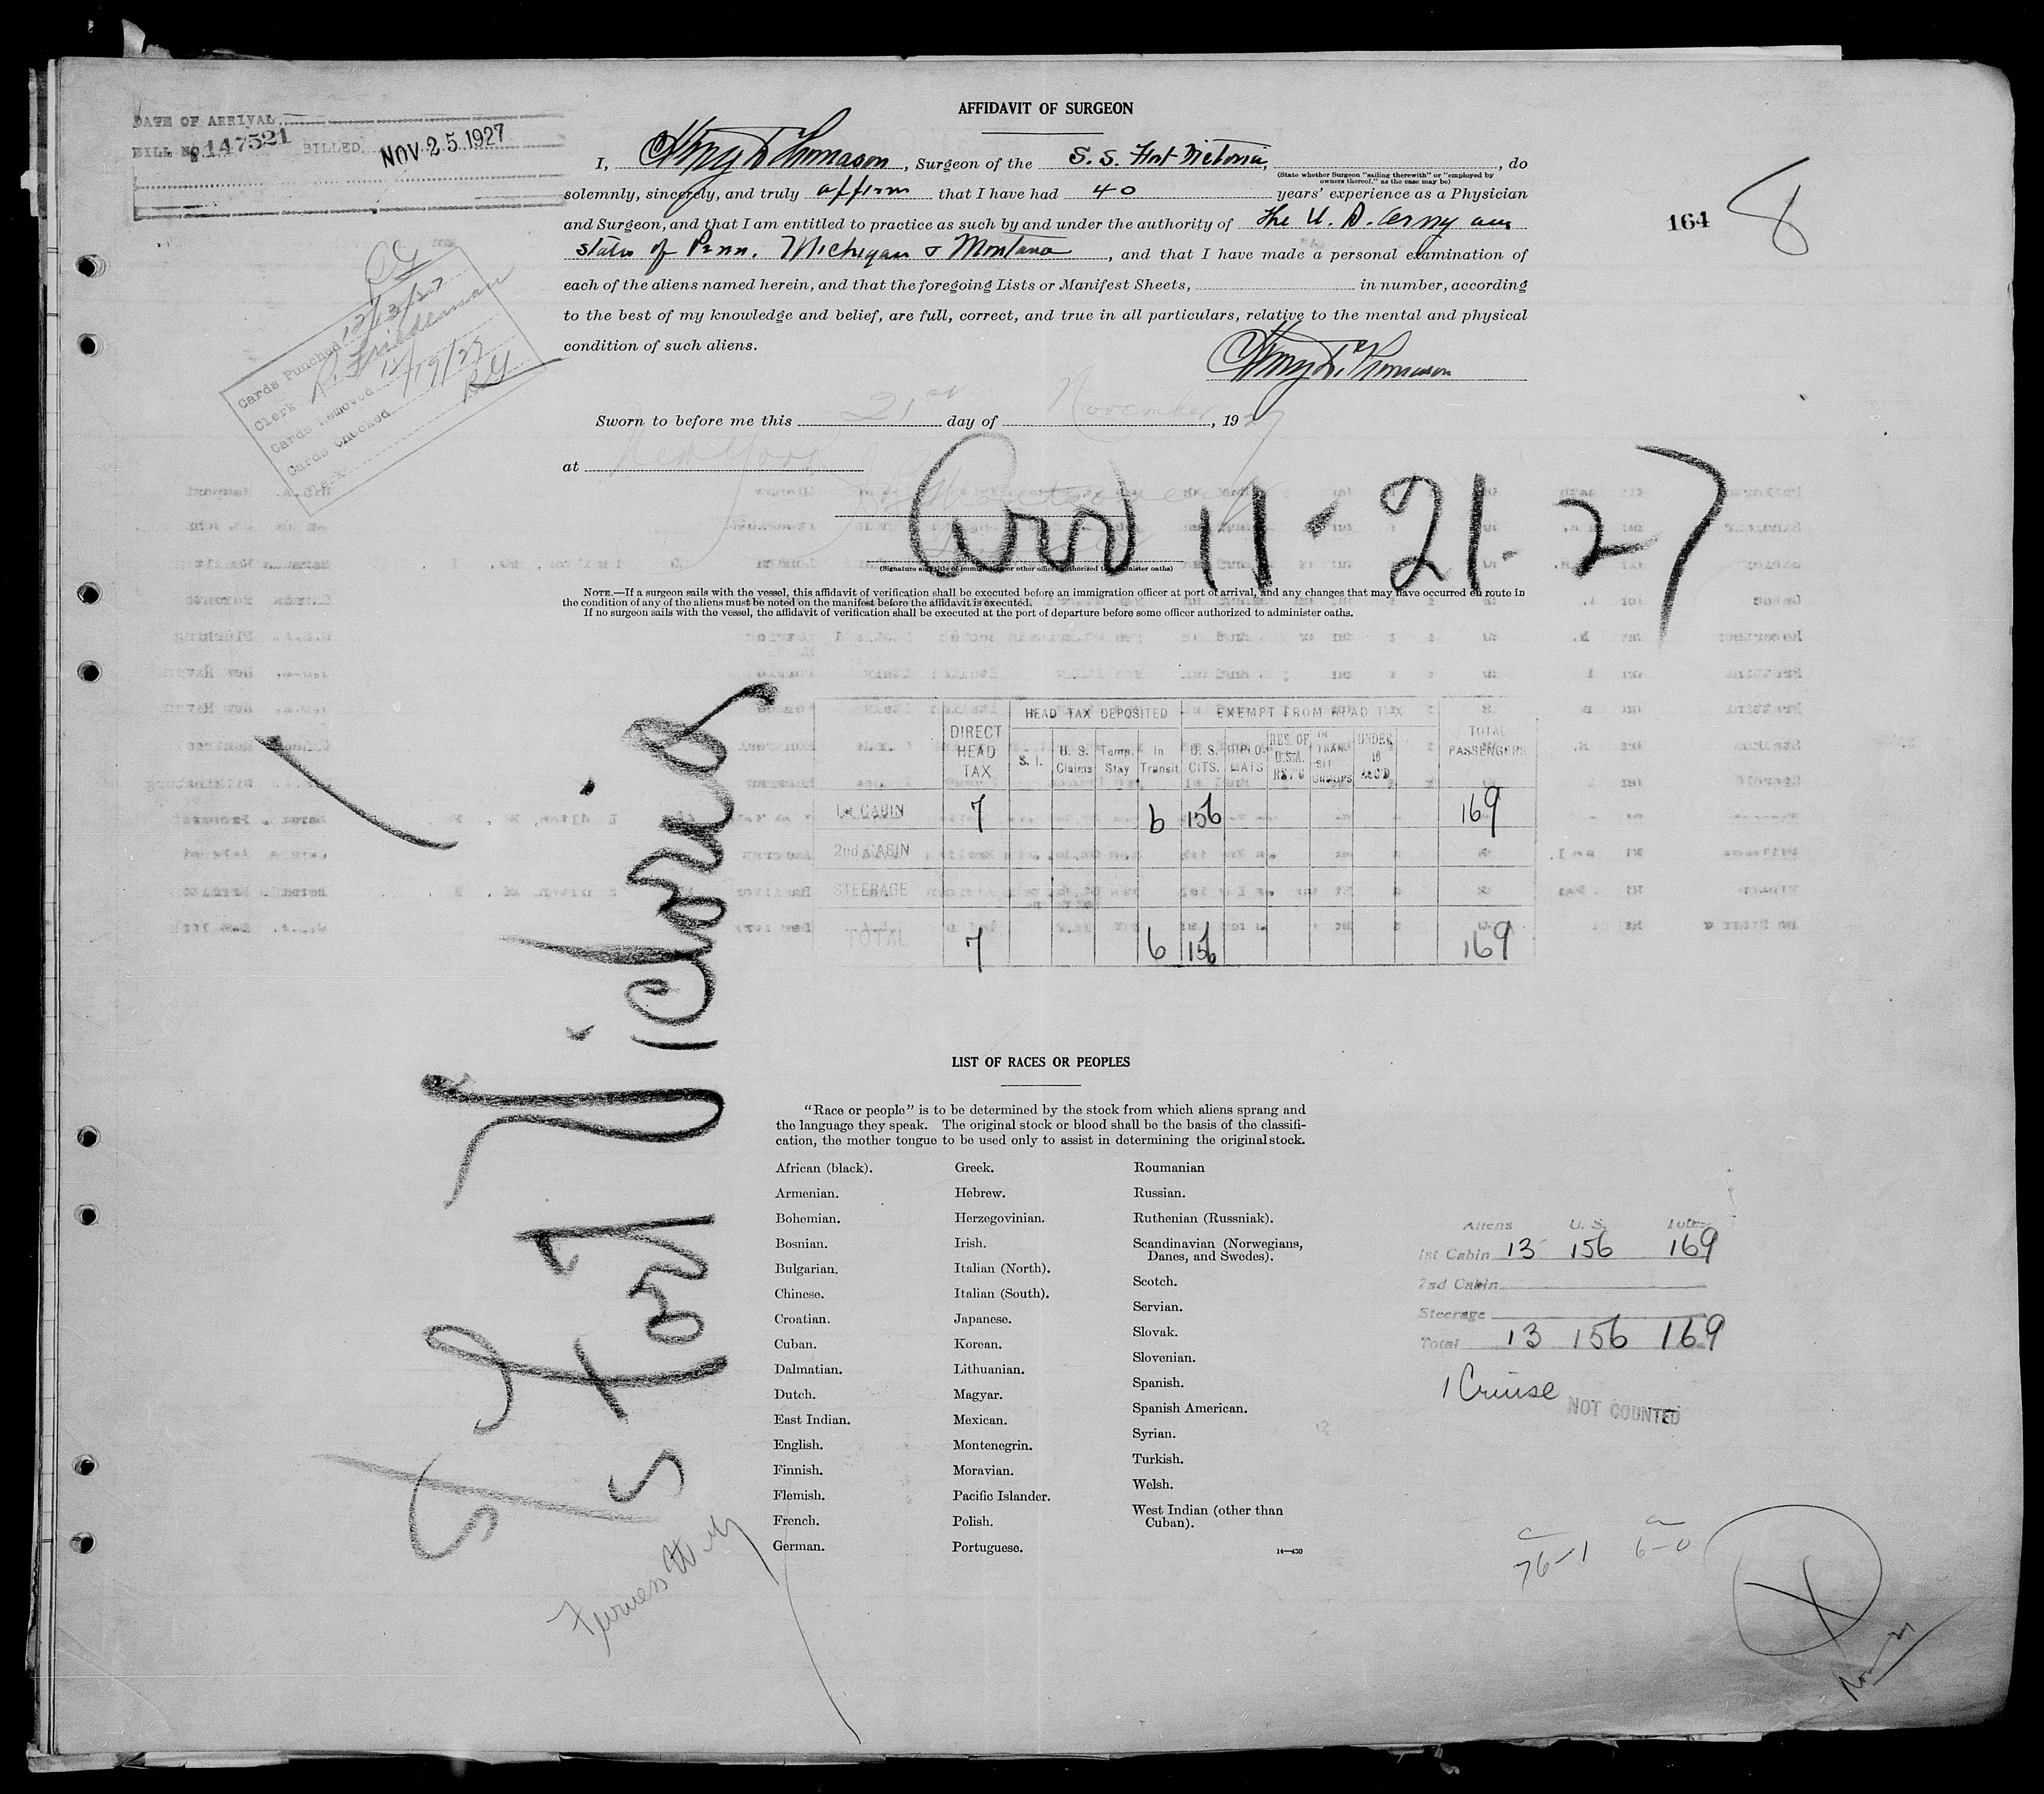 AFFIDAVIT OF SURGEON
DATE OF ARRIVAL
BILL No. 147521 BILLED NOV 25 1927
I, Henry D Thomason, Surgeon of the S.S. Fort Victoria, , do
(State whether Surgeon "sailing therewith" or "employed by
owners thereof," as the case may be)
solemnly, sincerely, and truly affirm that I have had 40 years' experience as a Physician
and Surgeon, and that I am entitled to practice as such by and under the authority of The U. S. Army and
States of Penn. Michigan & Montana, and that I have made a personal examination of
each of the aliens named herein, and that the foregoing Lists or Manifest Sheets, in number, according
to the best of my knowledge and belief, are full, correct, and true in all particulars, relative to the mental and physical
condition of such aliens.
Henry D. Thomason
164 8
Cards Punched 12/13/27
Clerk R. Friedeman
Cards Removed 12/19/27
Cards Checked
Clerk
Sworn to before me this 21st day of November, 1927
at New York
Arrd 11-21-27
(Signature and title of immigration or other officer authorized to administer oaths)
NOTE.—If a surgeon sails with the vessel, this affidavit of verification shall be executed before an immigration officer at port of arrival, and any changes that may have occurred en route in
the condition of any of the aliens must be noted on the manifest before the affidavit is executed.
If no surgeon sails with the vessel, the affidavit of verification shall be executed at the port of departure before some officer authorized to administer oaths.
SS Fort Victoria
DIRECT HEAD TAX HEAD TAX DEPOSITED EXEMPT FROM HEAD TAX TOTAL PASSENGERS
S. I. U. S. Claims Temp. Stay In Transit U. S. CITS. DIPLO-MATS RES. OF U.S.A. RET'G IN TRANSIT GROUPS UNDER 16 ACC'D
1st CABIN 7 6 156 169
2nd CABIN
STEERAGE
TOTAL 7 6 156 169
LIST OF RACES OR PEOPLES
"Race or people" is to be determined by the stock from which aliens sprang and
the language they speak. The original stock or blood shall be the basis of the classifi-
cation, the mother tongue to be used only to assist in determining the original stock.
African (black).
Armenian.
Bohemian.
Bosnian.
Bulgarian.
Chinese.
Croatian.
Cuban.
Dalmatian.
Dutch.
East Indian.
English.
Finnish.
Flemish.
French.
German.
Greek.
Hebrew.
Herzegovinian.
Irish.
Italian (North).
Italian (South).
Japanese.
Korean.
Lithuanian.
Magyar.
Mexican.
Montenegrin.
Moravian.
Pacific Islander.
Polish.
Portuguese.
Roumanian
Russian.
Ruthenian (Russniak).
Scandinavian (Norwegians,
Danes, and Swedes).
Scotch.
Servian.
Slovak.
Slovenian.
Spanish.
Spanish American.
Syrian.
Turkish.
Welsh.
West Indian (other than
Cuban).
14—430
Aliens U. S. Total
1st Cabin 13 156 169
2nd Cabin
Steerage
Total 13 156 169
1 Cruise NOT COUNTED
76-1 6-0
X
Furness